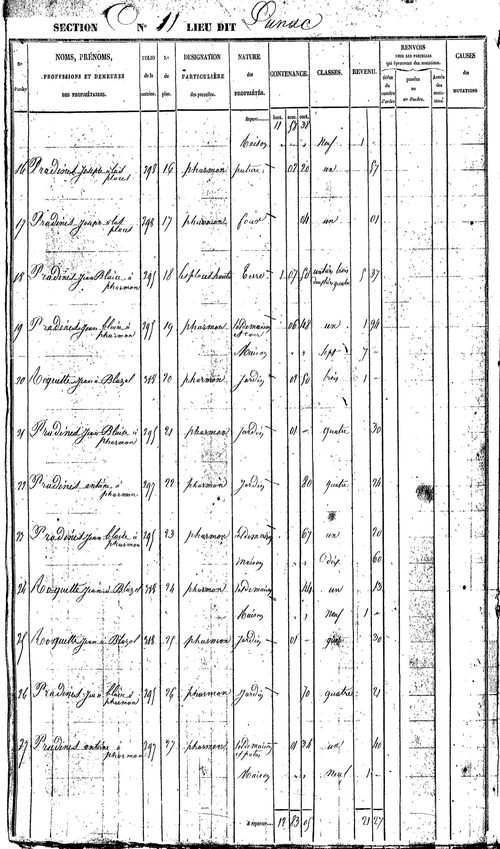 SECTION C N° 11 LIEU DIT Punac
N° d'ordre
NOMS, PRÉNOMS, PROFESSIONS ET DEMEURES DES PROPRIÉTAIRES.
FOLIO de la matrice.
N° du plan.
DESIGNATION PARTICULIÈRE des parcelles.
NATURE des PROPRIÉTÉS.
CONTENANCE.
CLASSES.
REVENU.
RENVOIS
CAUSES des MUTATIONS
hect. ares. cent.
Report 11 58 38
Maison " " neuf 1 -
16 Pradines Joseph à las places 298 16 pharmon pature 02 20 un 57
17 Pradines Joseph à las places 298 17 pharmon four 04 un 01
18 Pradines Jean Blaise à pharmon 295 18 les places hautes Terre 1 07 50 5 37
19 Pradines Jean Blaise à pharmon 295 19 pharmon Sol de maison et cour 06 48 un 1 94
Maison " " sept 7 -
20 Roquette Jean à Blazel 318 20 pharmon Jardin 02 50 trois 1 -
21 Pradines Jean Blaise à pharmon 295 21 pharmon Jardin 01 - quatre 30
22 Pradines antoine à pharmon 297 22 pharmon Jardin 80 quatre 24
23 Pradines Jean Blaise à pharmon 295 23 pharmon Sol de maison 67 un 20
maison " " dix 60
24 Roquette Jean à Blazel 318 24 pharmon Sol de maison 44 un 13
Maison " " neuf 1 -
25 Roquette Jean à Blazel 318 25 pharmon Jardin 01 - 30
26 Pradines Jean Blaise à pharmon 295 26 pharmon Jardin 70 quatre 21
27 Pradines antoine à pharmon 297 27 pharmon Sol de maison et patus 01 34 un 40
Maison neuf 1 -
A reporter 12 83 05 21 27